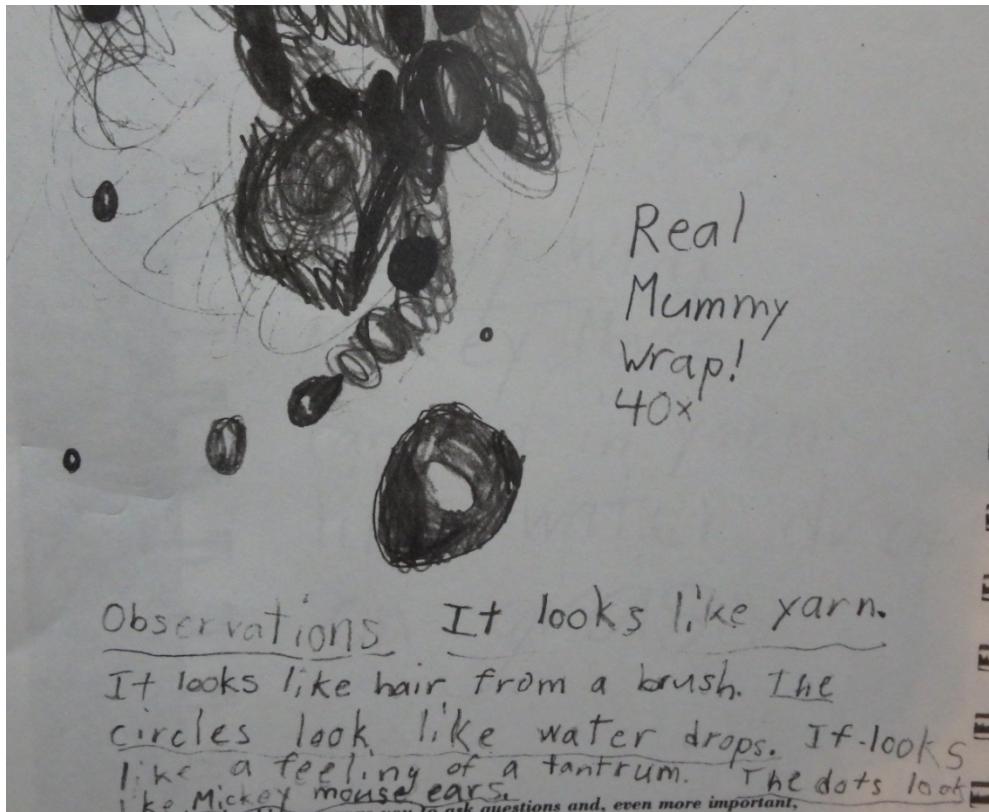 Real
Mummy
Wrap!
40x
Observations It looks like yarn.
It looks like hair from a brush. The
circles look like water drops. It looks
like a feeling of a tantrum. The dots look
like Mickey mouse ears.
you to ask questions and, even more important,